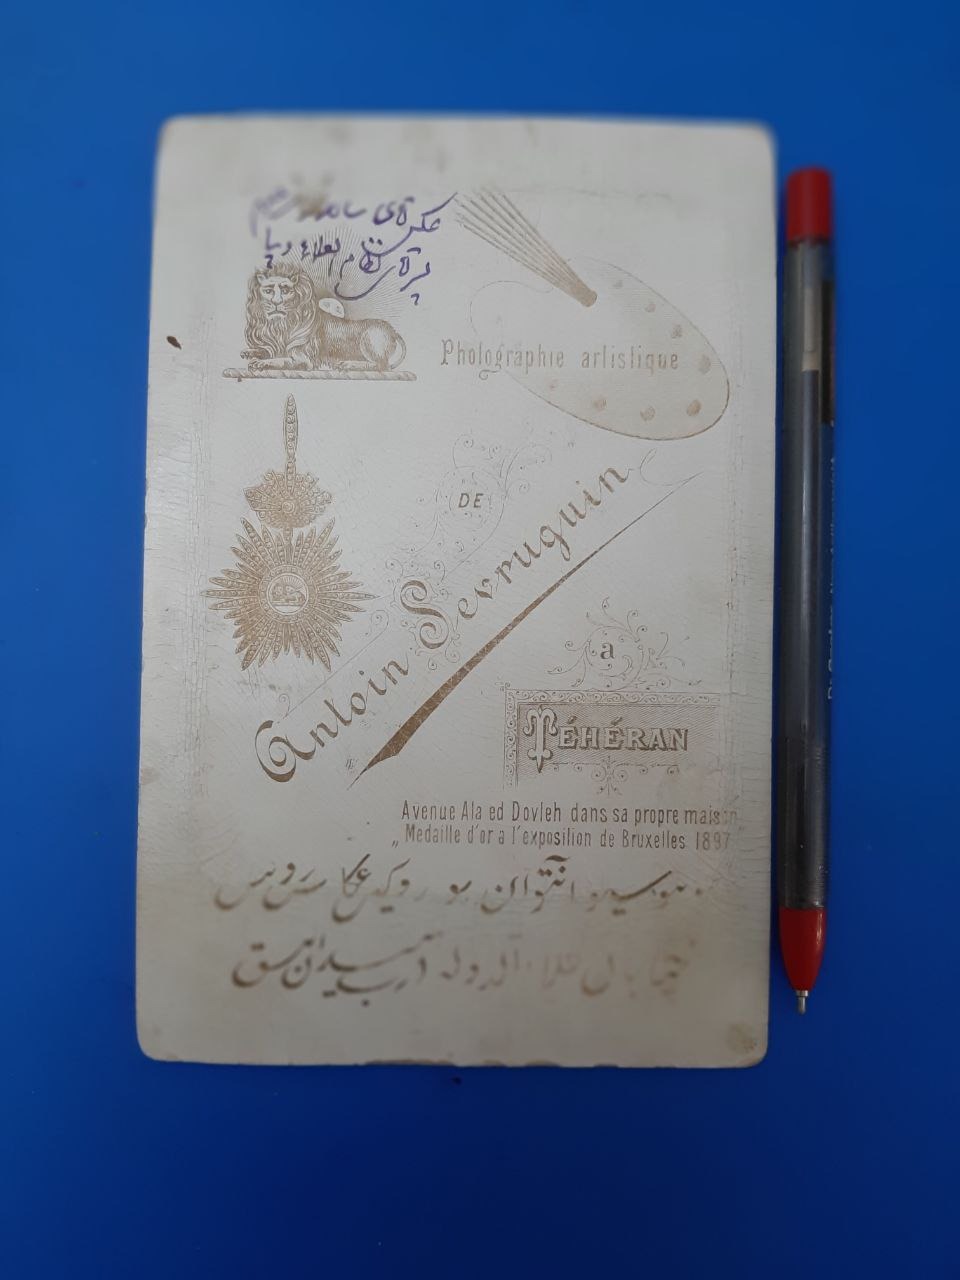 عکس آقای
پر آقای
Photographie artistique
DE
Antoin Sevruguin
a
TÉHÉRAN
Avenue Ala ed Dovleh dans sa propre maison
„Medaille d'or a l'exposition de Bruxelles 1897"
موسیو آنتوان سوروکین عکاس روس
خیابان علاء الدوله درب میدان مشق